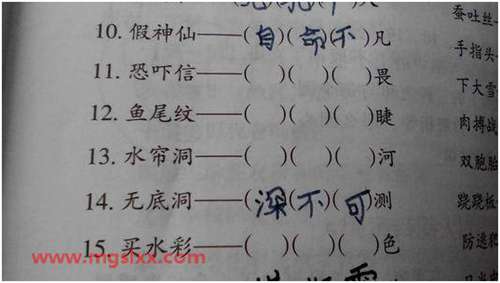 10. 假神仙——(自)(命)(不)凡
蚕吐丝
11. 恐吓信——( )( )( )畏
手指头
下大雪
12. 鱼尾纹——( )( )( )睫
肉搏战
13. 水帘洞——( )( )( )河
双胞胎
14. 无底洞——(深)(不)(可)测
跷跷板
15. 买水彩——( )( )( )色
防逃犯
www.mgslxx.com